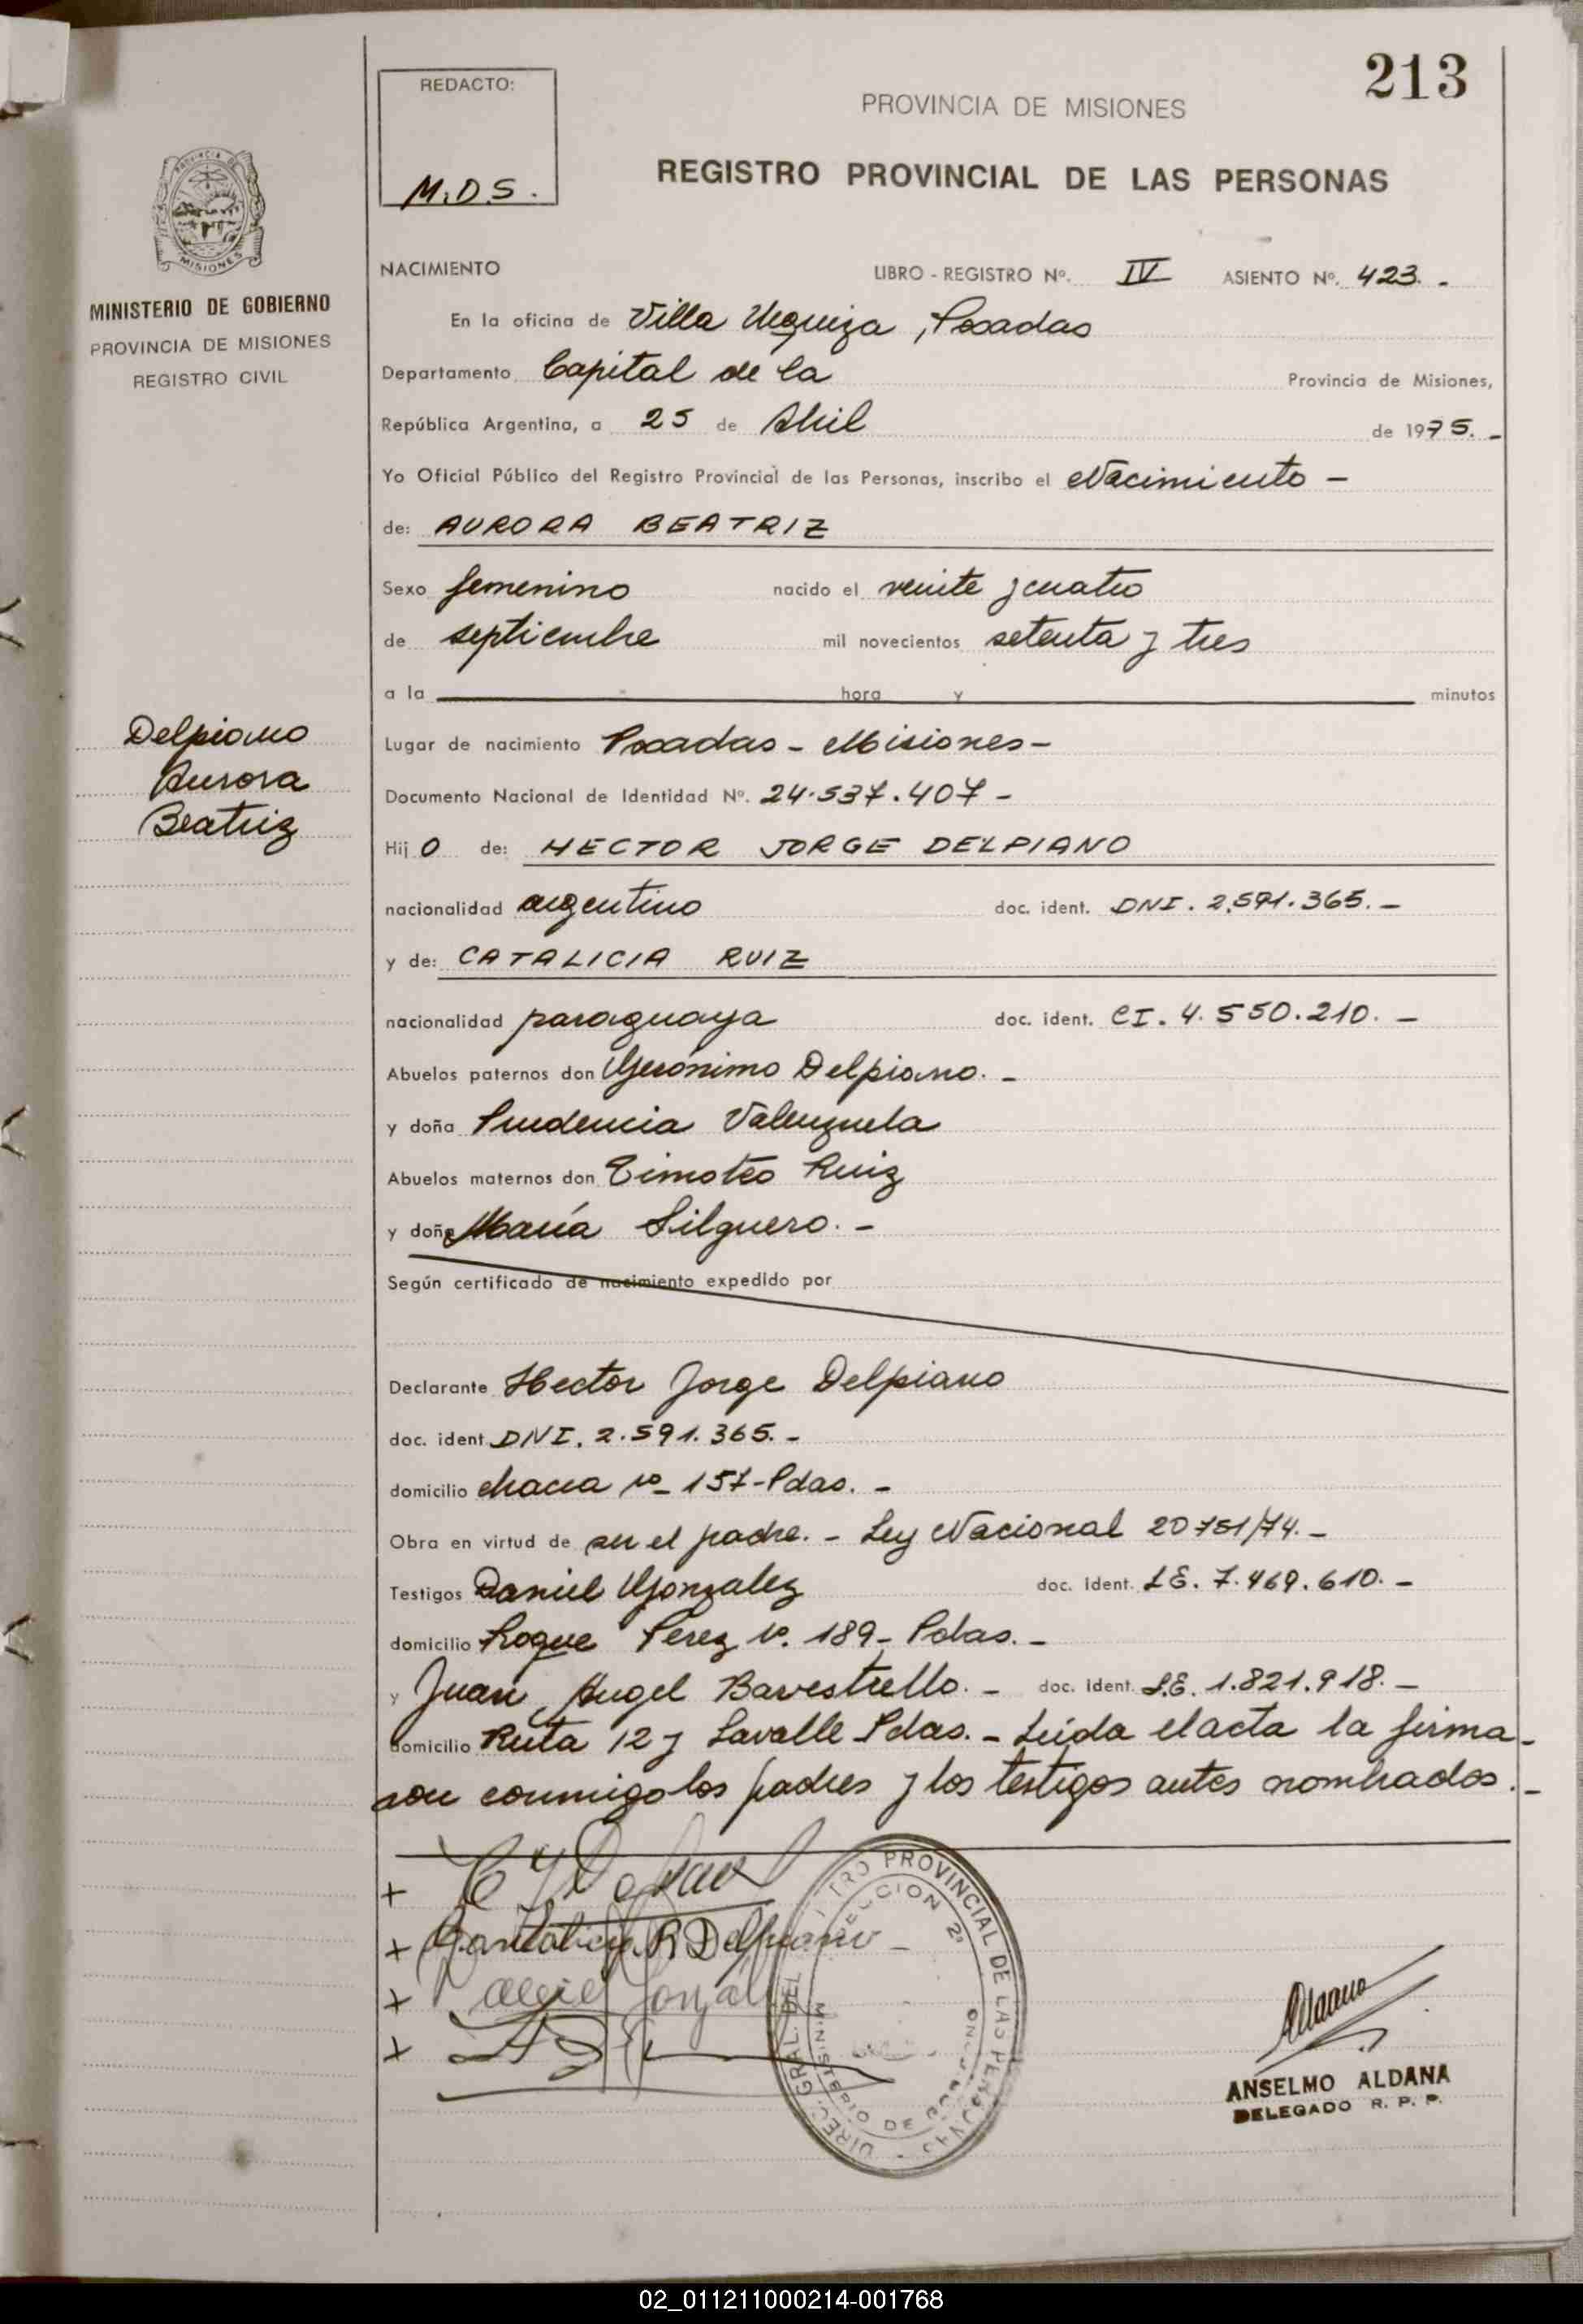 213
REDACTO:
M.D.S.
PROVINCIA DE MISIONES
REGISTRO PROVINCIAL DE LAS PERSONAS
PROVINCIA DE
MISIONES
MINISTERIO DE GOBIERNO
PROVINCIA DE MISIONES
REGISTRO CIVIL
NACIMIENTO LIBRO - REGISTRO Nº. IV ASIENTO Nº. 423. -
En la oficina de Villa Urquiza, Posadas
Departamento Capital de la Provincia de Misiones,
República Argentina, a 25 de Abril de 1975. -
Yo Oficial Público del Registro Provincial de las Personas, inscribo el Nacimiento -
de: AURORA BEATRIZ
Sexo femenino nacido el veinte y cuatro
de septiembre mil novecientos setenta y tres
a la hora y minutos
Delpiano
Aurora
Beatriz
Lugar de nacimiento Posadas - Misiones -
Documento Nacional de Identidad Nº. 24.537.407 -
Hij O de: HECTOR JORGE DELPIANO
nacionalidad argentino doc. ident. DNI. 2.591.365. -
y de: CATALICIA RUIZ
nacionalidad paraguaya doc. ident. CI. 4.550.210. -
Abuelos paternos don Gerónimo Delpiano. -
y doña Prudencia Valenzuela
Abuelos maternos don Timoteo Ruiz
y doña María Silguero. -
Según certificado de nacimiento expedido por
Declarante Hector Jorge Delpiano
doc. ident. DNI. 2.591.365. -
domicilio chacra nº 157-Pdas. -
Obra en virtud de ser el padre. - Ley Nacional 20751/74. -
Testigos Daniel Gonzalez doc. ident. LE. 7.469.610. -
domicilio Roque Perez nº. 189- Pdas. -
y Juan Angel Bavestrello. - doc. ident. L.E. 1.821.918. -
domicilio Ruta 12 y Lavalle Pdas. - Leída el acta la firma-
ron conmigo los padres y los testigos antes nombrados. -
DIREC. GRAL. DEL REGISTRO PROVINCIAL DE LAS PERSONAS
SECCION 2ª
MINISTERIO DE GOBIERNO
R Delpiano
Daniel González
Aldana
ANSELMO ALDANA
DELEGADO R. P. P.
02_011211000214-001768